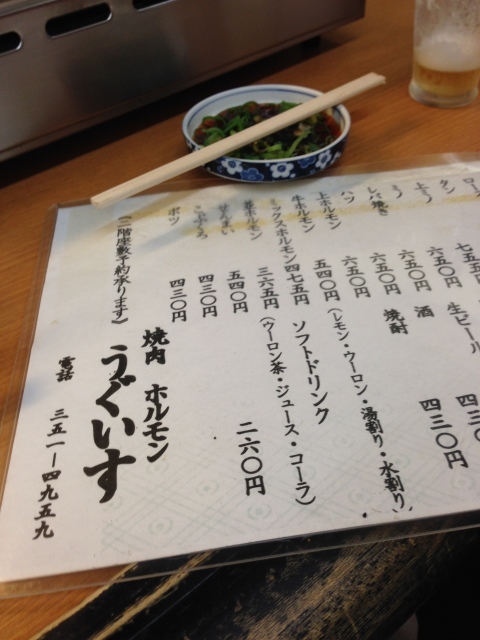 ロー
タン
上ミノ 七五五
ミノ 六五〇円
レバ焼き 六五〇円
ハツ 六五〇円
上ホルモン 六五〇円
牛ホルモン 五四〇円
ミックスホルモン 四七五円
並ホルモン 三六五円
せんまい 五四〇円
こぶくろ 四三〇円
ボツ 四三〇円
生ビール 四三
酒 四三〇円
焼酎
(レモン・ウーロン・湯割り・水割り)
ソフトドリンク
(ウーロン茶・ジュース・コーラ)
二六〇円
(二階座敷予約承ります)
焼肉 ホルモン
うぐいす
電話 三五一ー四九五九